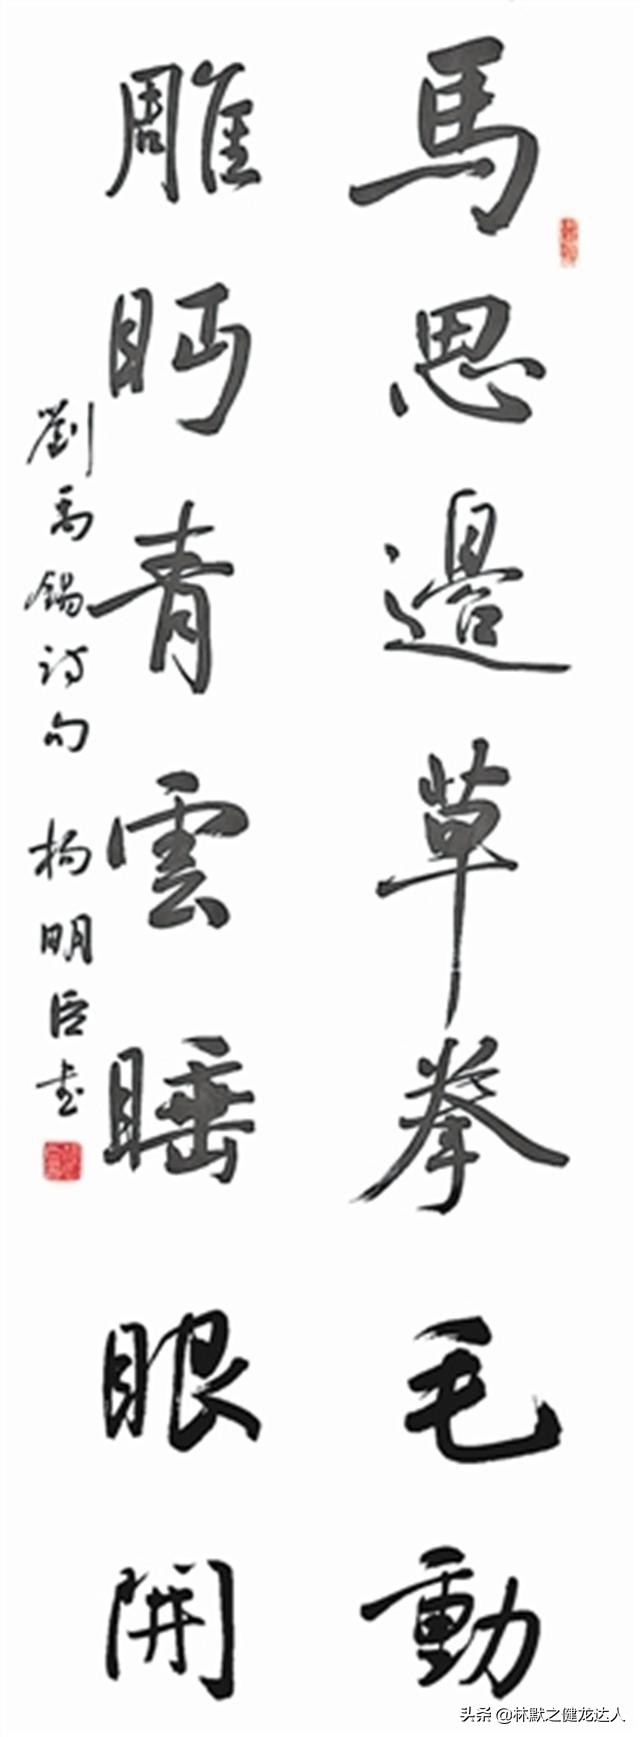 馬思邊草拳毛動
雕眄青雲睡眼開
劉禹錫詩句 楊明臣書
头条 @林默之健龙达人